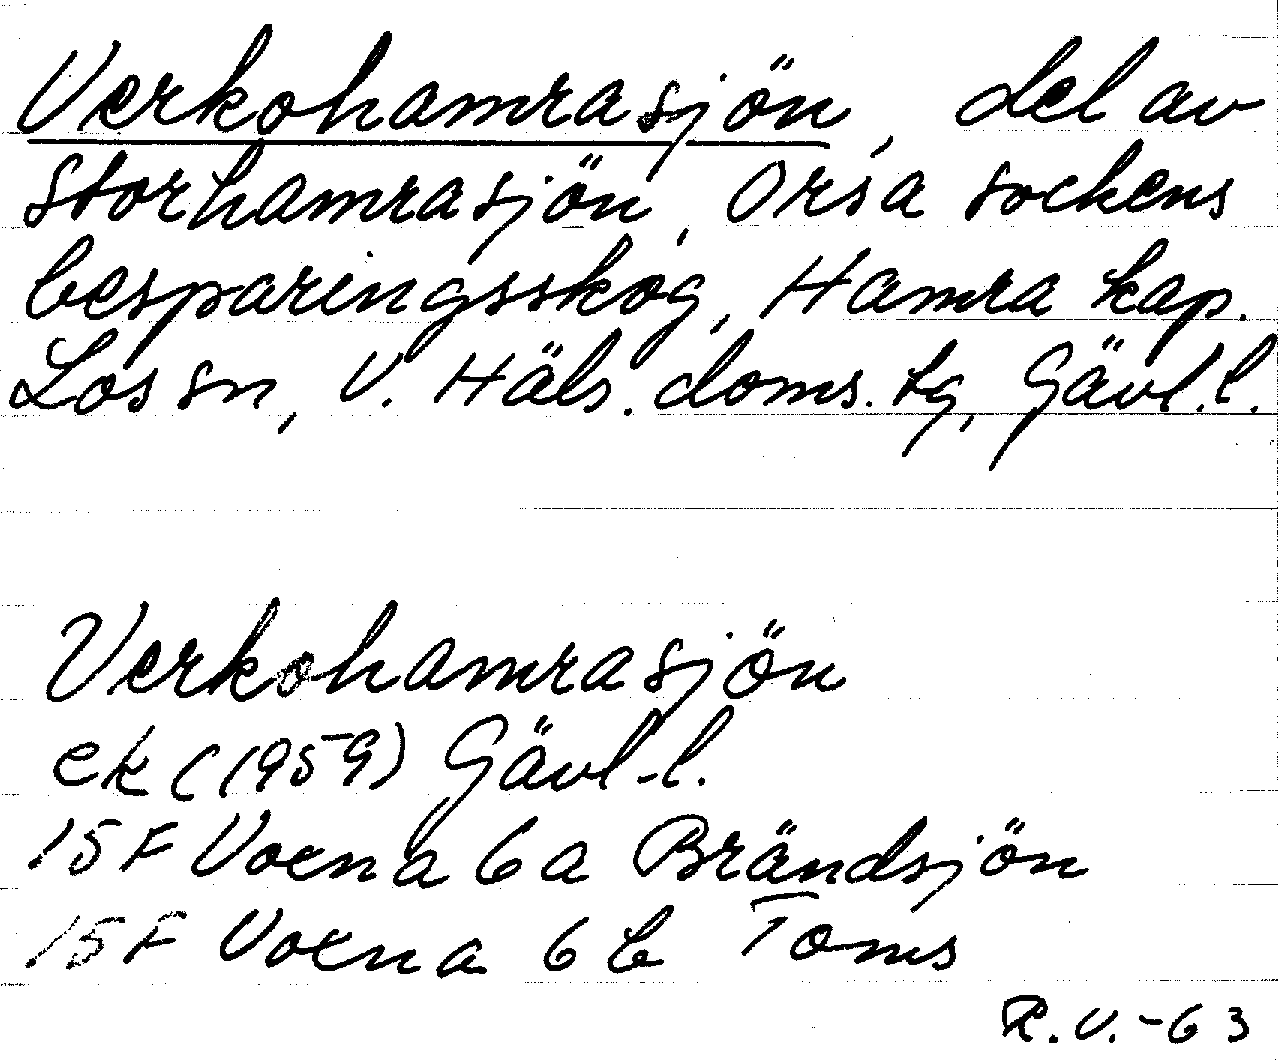 Verkohamrasjön, del av
Storhamrasjön, Orsa sockens
besparingsskog, Hamra kap.
Los sn, V. Häls. doms. tg, Gävl.l.
Verkohamrasjön
ek (1959) Gävl-l.
15F Voxna 6a Brändsjön
15F Voxna 6b Toms
R.V.-63